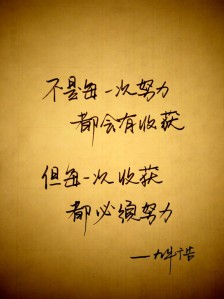 不是每一次努力
都会有收获
但每一次收获
都必须努力